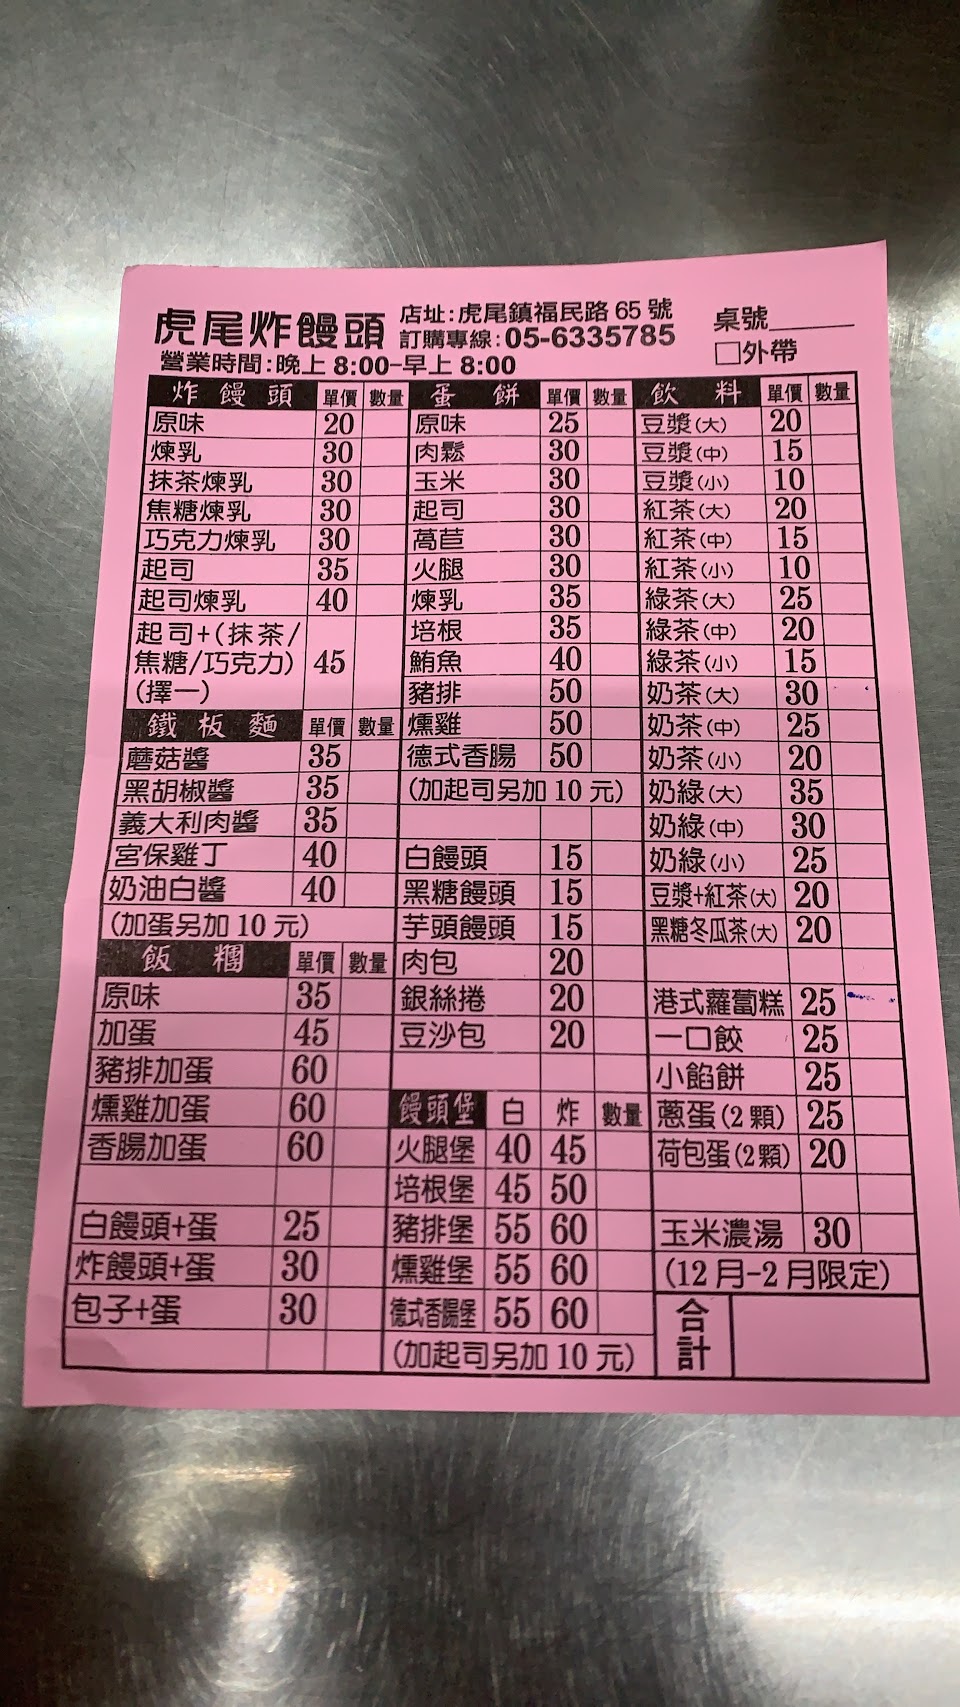 虎尾炸饅頭
店址:虎尾鎮福民路 65 號
訂購專線:05-6335785
營業時間:晚上 8:00-早上 8:00
桌號______
□外帶
炸饅頭 單價 數量
原味 20
煉乳 30
抹茶煉乳 30
焦糖煉乳 30
巧克力煉乳 30
起司 35
起司煉乳 40
起司+(抹茶/
焦糖/巧克力) 45
(擇一)
鐵板麵 單價 數量
蘑菇醬 35
黑胡椒醬 35
義大利肉醬 35
宮保雞丁 40
奶油白醬 40
(加蛋另加 10 元)
飯糰 單價 數量
原味 35
加蛋 45
豬排加蛋 60
燻雞加蛋 60
香腸加蛋 60
白饅頭+蛋 25
炸饅頭+蛋 30
包子+蛋 30
蛋餅 單價 數量
原味 25
肉鬆 30
玉米 30
起司 30
萵苣 30
火腿 30
煉乳 35
培根 35
鮪魚 40
豬排 50
燻雞 50
德式香腸 50
(加起司另加 10 元)
白饅頭 15
黑糖饅頭 15
芋頭饅頭 15
肉包 20
銀絲捲 20
豆沙包 20
饅頭堡 白 炸 數量
火腿堡 40 45
培根堡 45 50
豬排堡 55 60
燻雞堡 55 60
德式香腸堡 55 60
(加起司另加 10 元)
飲料 單價 數量
豆漿(大) 20
豆漿(中) 15
豆漿(小) 10
紅茶(大) 20
紅茶(中) 15
紅茶(小) 10
綠茶(大) 25
綠茶(中) 20
綠茶(小) 15
奶茶(大) 30
奶茶(中) 25
奶茶(小) 20
奶綠(大) 35
奶綠(中) 30
奶綠(小) 25
豆漿+紅茶(大) 20
黑糖冬瓜茶(大) 20
港式蘿蔔糕 25
一口餃 25
小餡餅 25
蔥蛋(2 顆) 25
荷包蛋(2 顆) 20
玉米濃湯 30
(12 月-2 月限定)
合計